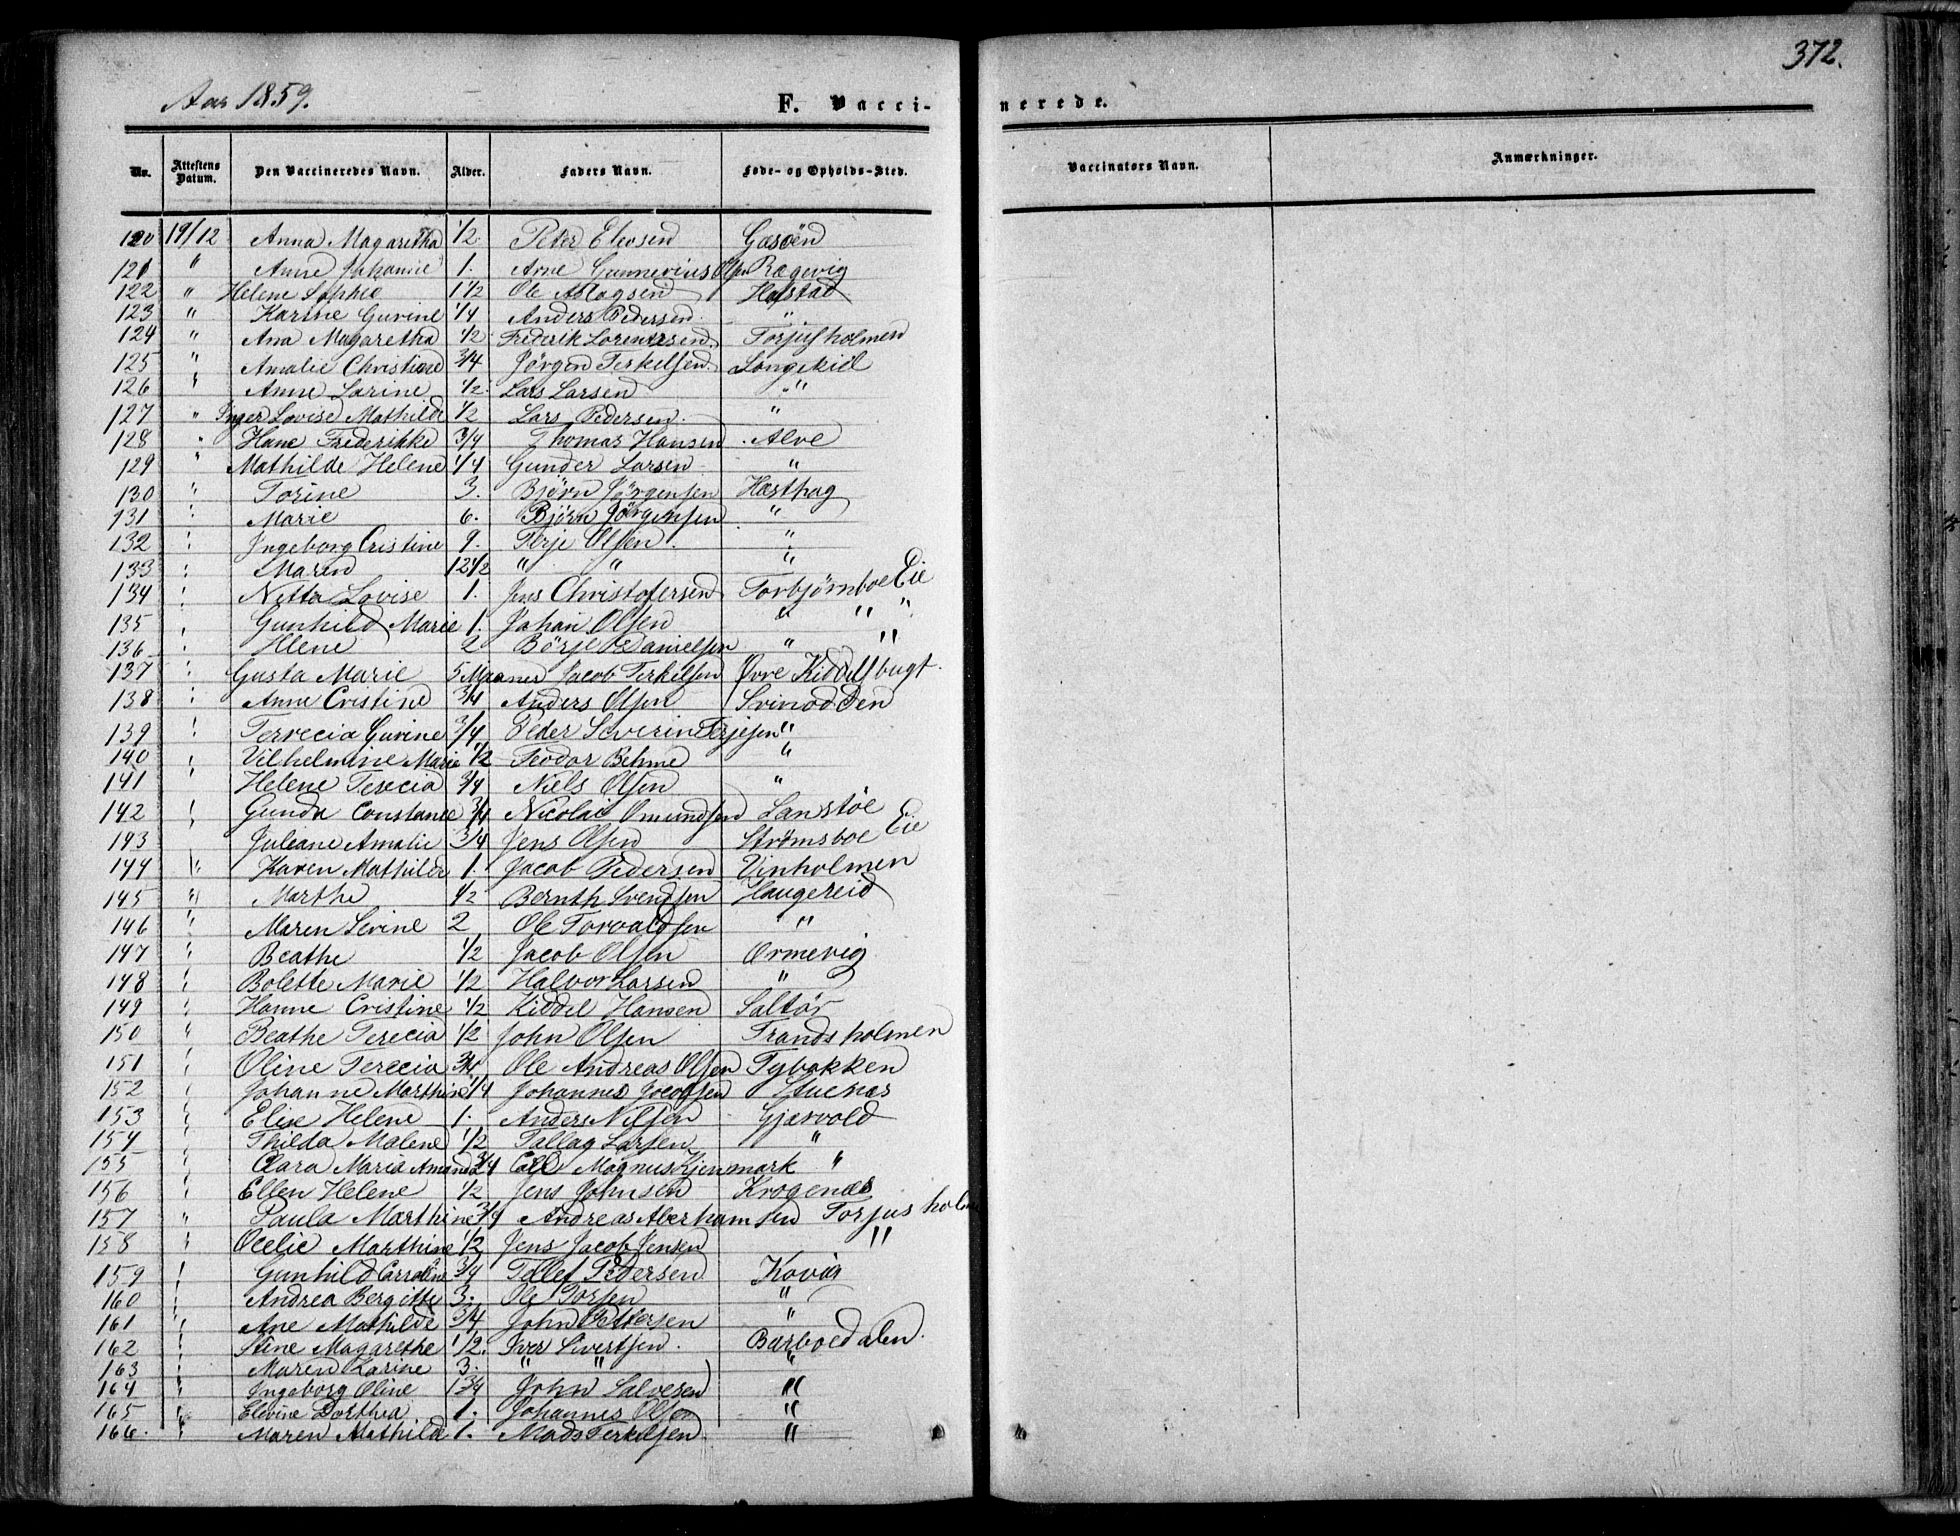 372.
Aar 1859. F. Vaccinerede.
Nr. Attestens Datum. Den Vaccineredes Navn. Alder. Faders Navn. Føde- og Opholds-Sted. Vaccinators Navn. Anmærkninger.
120 19/12 Anna Magaretha 1/2 Peter Elevsen Gasöen
121 " Anne Johanne 1. Arne Gunnerius Olsen Rægevig
122 " Helene Sophie 1 1/2 Ole Aslagsen Hafstad
123 " Karine Guvine 1/4 Anders Pedersen "
124 " Ana Magaretha 1/2 Frederik Lorentsen Torjusholmen
125 " Amalie Christiane 3/4 Jörgen Terkelsen Longekiil
126 " Anne Larine 1/2 Lars Larsen "
127 " Inger Lovise Mathilde 1/2 Lars Pedersen "
128 " Hane Frederikke 3/4 Thomas Hansen Alve
129 " Mathilde Helene 1/4 Gunder Larsen "
130 " Torine 3. Björn Jörgensen Hæsthag
131 " Marie 6. Björn Jörgensen "
132 " Ingeborg Cristine 9. Terje Olsen "
133 " Maren 12 1/2 " " "
134 " Netta Lovise 1. Jens Christofersen Torbjörnboe Eie
135 " Gunhild Marie 1. Johan Olsen " " "
136 " Helene 2 Börje Danielsen " "
137 " Gusta Marie 5 Maaner Jacob Terkelsen Øvre Kiddelsbugt
138 " Anne Cristine 3/4 Anders Olsen Svinodden
139 " Terrecia Guvine 3/4 Peder Severin Terjesen "
140 " Vilhelmine Marie 1/2 Feodor Behme "
141 " Helene Terecia 3/4 Niels Olsen "
142 " Gunda Constance 3/4 Nicolai Omundsen Lanstöe
143 " Juliane Amalie 3/4 Jens Olsen Strømsboe Eie
144 " Karen Mathilde 1. Jacob Pedersen Vinholmen
145 " Marthe 1/2 Bernth Svendsen Haugereid
146 " Maren Sevine 2 Ole Torvaldsen "
147 " Beathe 1/2 Jacob Olsen Ormevig
148 " Bolette Marie 1/2 Halvor Larsen "
149 " Hanne Cristine 1/2 Kiddel Hansen Saltör
150 " Beathe Terecia 1/2 John Olsen Frandsholmen
151 " Oline Terecia 3/4 Ole Andreas Olsen Tybakken
152 " Johanne Marthine 1/4 Johannes Jacobsen Stuenæs
153 " Elise Helene 1. Anders Nilsen Gjærvold
154 " Thilda Malene 1/2 Tallag Larsen "
155 " Clara Maria Amanda 3/4 Magnus Kjenmark "
156 " Ellen Helene 1/2 Jens Johnsen Krogenæs
157 " Paula Marthine 3/4 Andreas Aberhamsen Torjusholm
158 " Ocelie Marthine 1/2 Jens Jacob Jensen "
159 " Gunhild Carroline 3/4 Tellef Pedersen Kovig
160 " Andrea Bergitte 3. Ole Torsen "
161 " Ane Mathilde 3/4 John Pettersen "
162 " Stine Magarethe 1/2. Iver Sivertsen Barboedalen.
163 " Maren Karine 3. " " "
164 " Ingeborg Oline 1 3/4 John Salvesen "
165 " Elevine Dorthea 1. Johannes Olsen "
166. " Maren Mathilde 1. Mads Terkelsen "